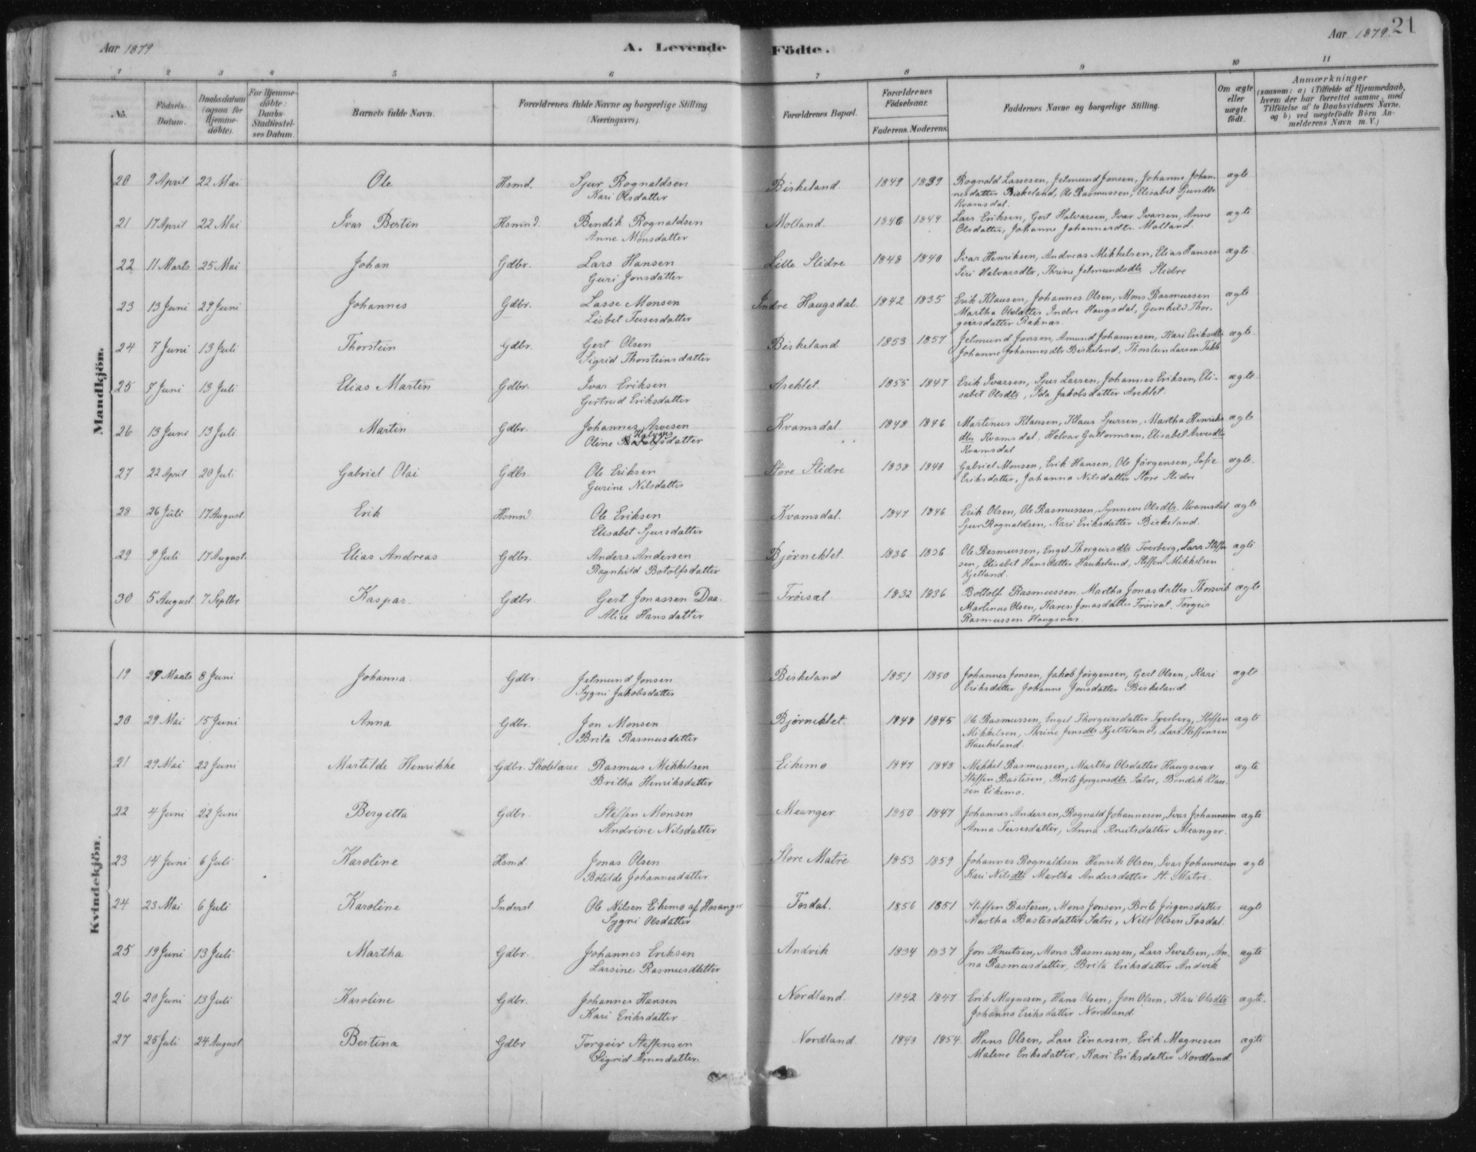 Aar 1879 A. Levende Födte. Aar 1879. 21
1 2 3 4 5 6 7 8 9 10 11
No. Födsels-Datum. Daabsdatum (ogsaa for Hjemmedöbte). For Hjemmedöbte: Daabs-Stadfæstelses Datum. Barnets fulde Navn. Forældrenes fulde Navne og borgerlige Stilling (Næringsvei). Forældrenes Bopæl. Forældrenes Födselsaar. Faderens. Moderens. Faddernes Navne og borgerlige Stilling. Om ægte eller uægte födt. Anmærkninger (saasom: a) i Tilfælde af Hjemmedaab, hvem der har forrettet samme, med Tilföielse af to Daabsvidners Navne, og b) ved uægtefödte Börn Anmelderens Navn m. V.)
Mandkjön.
20 9 April 22 Mai Ole Hsmd. Sjur Rognaldsen Birkeland 1849 1839 Rognald Larsesen, Jetmund Jonsen, Johanne Johan- ægte
Kari Olsdatter nesdatter Birkeland, Ole Rasmussen, Elisabet Sjursdtr
Kvamsdal.
21 17 April 22 Mai Ivar Bertin Hsmnd. Bendik Rognaldsen Molland 1846 1849 Lars Eriksen, Gert Halvorsen, Ivar Ivarsen, Anne ægte
Anne Monsdatter Olsdatter, Johanne Johannesdtr. Molland.
22 11 Marts 25 Mai Johan Gdbr. Lars Hansen Lille Slidre 1848 1840 Ivar Henriksen, Andreas Mikkelsen, Elias Hansen ægte
Guri Jonsdatter Siri Halvorsdtr, Strine Jetmundsdtr Slidre
23 13 Juni 29 Juni Johannes Gdbr. Lasse Monsen Indre Haugsdal. 1842 1835 Erik Klausen, Johannes Olsen, Mons Rasmussen ægte
Lisbet Teisesdatter Martha Olsdatter Indre Haugsdal, Gunhild Thor-
geirsdatter Raknas.
24 7 Juni 13 Juli Thorstein Gdbr. Gert Olsen Birkeland 1853 1857 Jetmund Jonsen, Amund Johannesen, Kari Eriksdtr ægte
Sigrid Thorsteinsdatter Johanne Johannesdtr Birkeland, Thorstein Larsen
25 7 Juni 13 Juli Elias Martin Gdbr. Ivar Eriksen 1855 1847 Erik Ivarsen, Sjur Larsen, Johannes Eriksen, Eli- ægte
Gertrud Eriksdatter sabet Olsdtr, Ida Jakobsdatter
26 13 Juni 13 Juli Martin Gdbr. Johannes Arvesen Kvamsdal 1848 1846 Martinus Klausen, Klaus Sjursen, Martha Henriks- ægte
Oline Halvorsdatter dtr Kvamsdal, Halvor Guttormsen, Elisabet
Kvamsdal
27 22 April 20 Juli Gabriel Olai Gdbr. Ole Eriksen Store Slidre 1838 1840 Gabriel Monsen, Erik Hansen, Ole Jörgensen, Sofie ægte
Gurine Nilsdatter Eriksdatter, Johanna Nilsdatter Store Slidre
28 26 Juli 17 August Erik Hsmnd Ole Eriksen Kvamsdal. 1847 1846 Erik Olsen, Ole Rasmussen, Synneve Olsdtr Kvamsdal ægte
Elisabet Sjursdatter Sjur Rognaldsen, Kari Eriksdatter Birkeland.
29 9 Juli 17 August Elias Andreas Gdbr. Anders Andersen 1836 1836 Ole Rasmussen, Engel Thorgeirsdtr Tverberg, Lars Steffen- ægte
Ragnhild Botolfsdatter sen, Elisabet Hansdatter Haukeland, Steffen Mikkelsen
Kjetland.
30 5 August 7 Septbr Kaspar Gdbr Gert Jonassen Daa. Fröiset 1832 1836 Bottolf Rasmussen, Martha Jonasdatter ægte
Alice Hansdatter Martinus Olsen, Karen Jonasdatter Fröiset, Torgeir
Rasmussen Haugsvær
Kvindekjön.
19 29 Marts 8 Juni Johanna Gdbr Jetmund Jonsen Birkeland 1851 1850 Johannes Jonsen, Jakob Jörgensen, Gert Olsen, Kari ægte
Sygni Jakobsdatter Eriksdatter Johanne Jonsdatter Birkeland
20 29 Mai 15 Juni Anna Gdbr. Jon Monsen 1848 1845 Ole Rasmussen, Engel Thorgeirsdatter Tverberg, Steffen ægte
Brita Rasmusdatter Mikkelsen, Strine Jensdtr Kjetteland, Lars Steffensen
Haukeland.
21 29 Mai 22 Juni Martilde Henrikke Gdbr. Skolelærer Rasmus Mikkelsen Eikemo 1847 1848 Mikkel Rasmussen, Martha Olsdatter Haugsvær ægte
Britha Henriksdatter Steffen Bastesen, Brite Jörgensdtr Sætre, Bendik Klau-
sen Eikemo.
22 4 Juni 22 Juni Bergitta Gdbr. Steffen Monsen Meanger 1850 1847 Johannes Andersen, Rognald Johannesen, Ivar Johannesen ægte
Andrine Nilsdatter Anna Teisesdatter, Anna Knutsdatter Meanger.
23 14 Juni 6 Juli Karoline Hsmd Jonas Olsen Store Matre 1853 1859 Johannes Rognaldsen Henrik Olsen, Ivar Johannesen ægte
Botilde Johannesdatter Kari Nilsdtr Martha Andersdatter St. Matre.
24 23 Mai 6 Juli Karoline Inderst Ole Nilsen Eikemo af Hosanger Fosdal. 1856 1851 Steffen Bastesen, Mons Jonsen, Brite Jörgensdatter ægte
Sygni Olsdatter Martha Bastesdatter Sætre, Nils Olsen Fosdal.
25 19 Juni 13 Juli Martha Gdbr. Johannes Eriksen Andvik 1834 1837 Jon Knutsen, Mons Rasmussen, Lars Sevalsen, An- ægte
Larsine Rasmusdatter na Rasmusdatter, Brita Eriksdatter Andvik
26 20 Juni 13 Juli Karoline Gdbr. Johannes Hansen Nordland. 1842 1847 Erik Magnesen, Hans Olsen, Jon Olsen, Kari Olsdtr ægte.
Kari Eriksdatter Johanna Eriksdatter Nordland
27 25 Juli 24 August Bertina Gdbr Torgeir Steffensen Nordland. 1849 1854 Hans Olsen, Lars Einarsen, Erik Magnesen ægte
Sigrid Arnesdatter. Malene Eriksdatter, Kari Eriksdatter Nordland